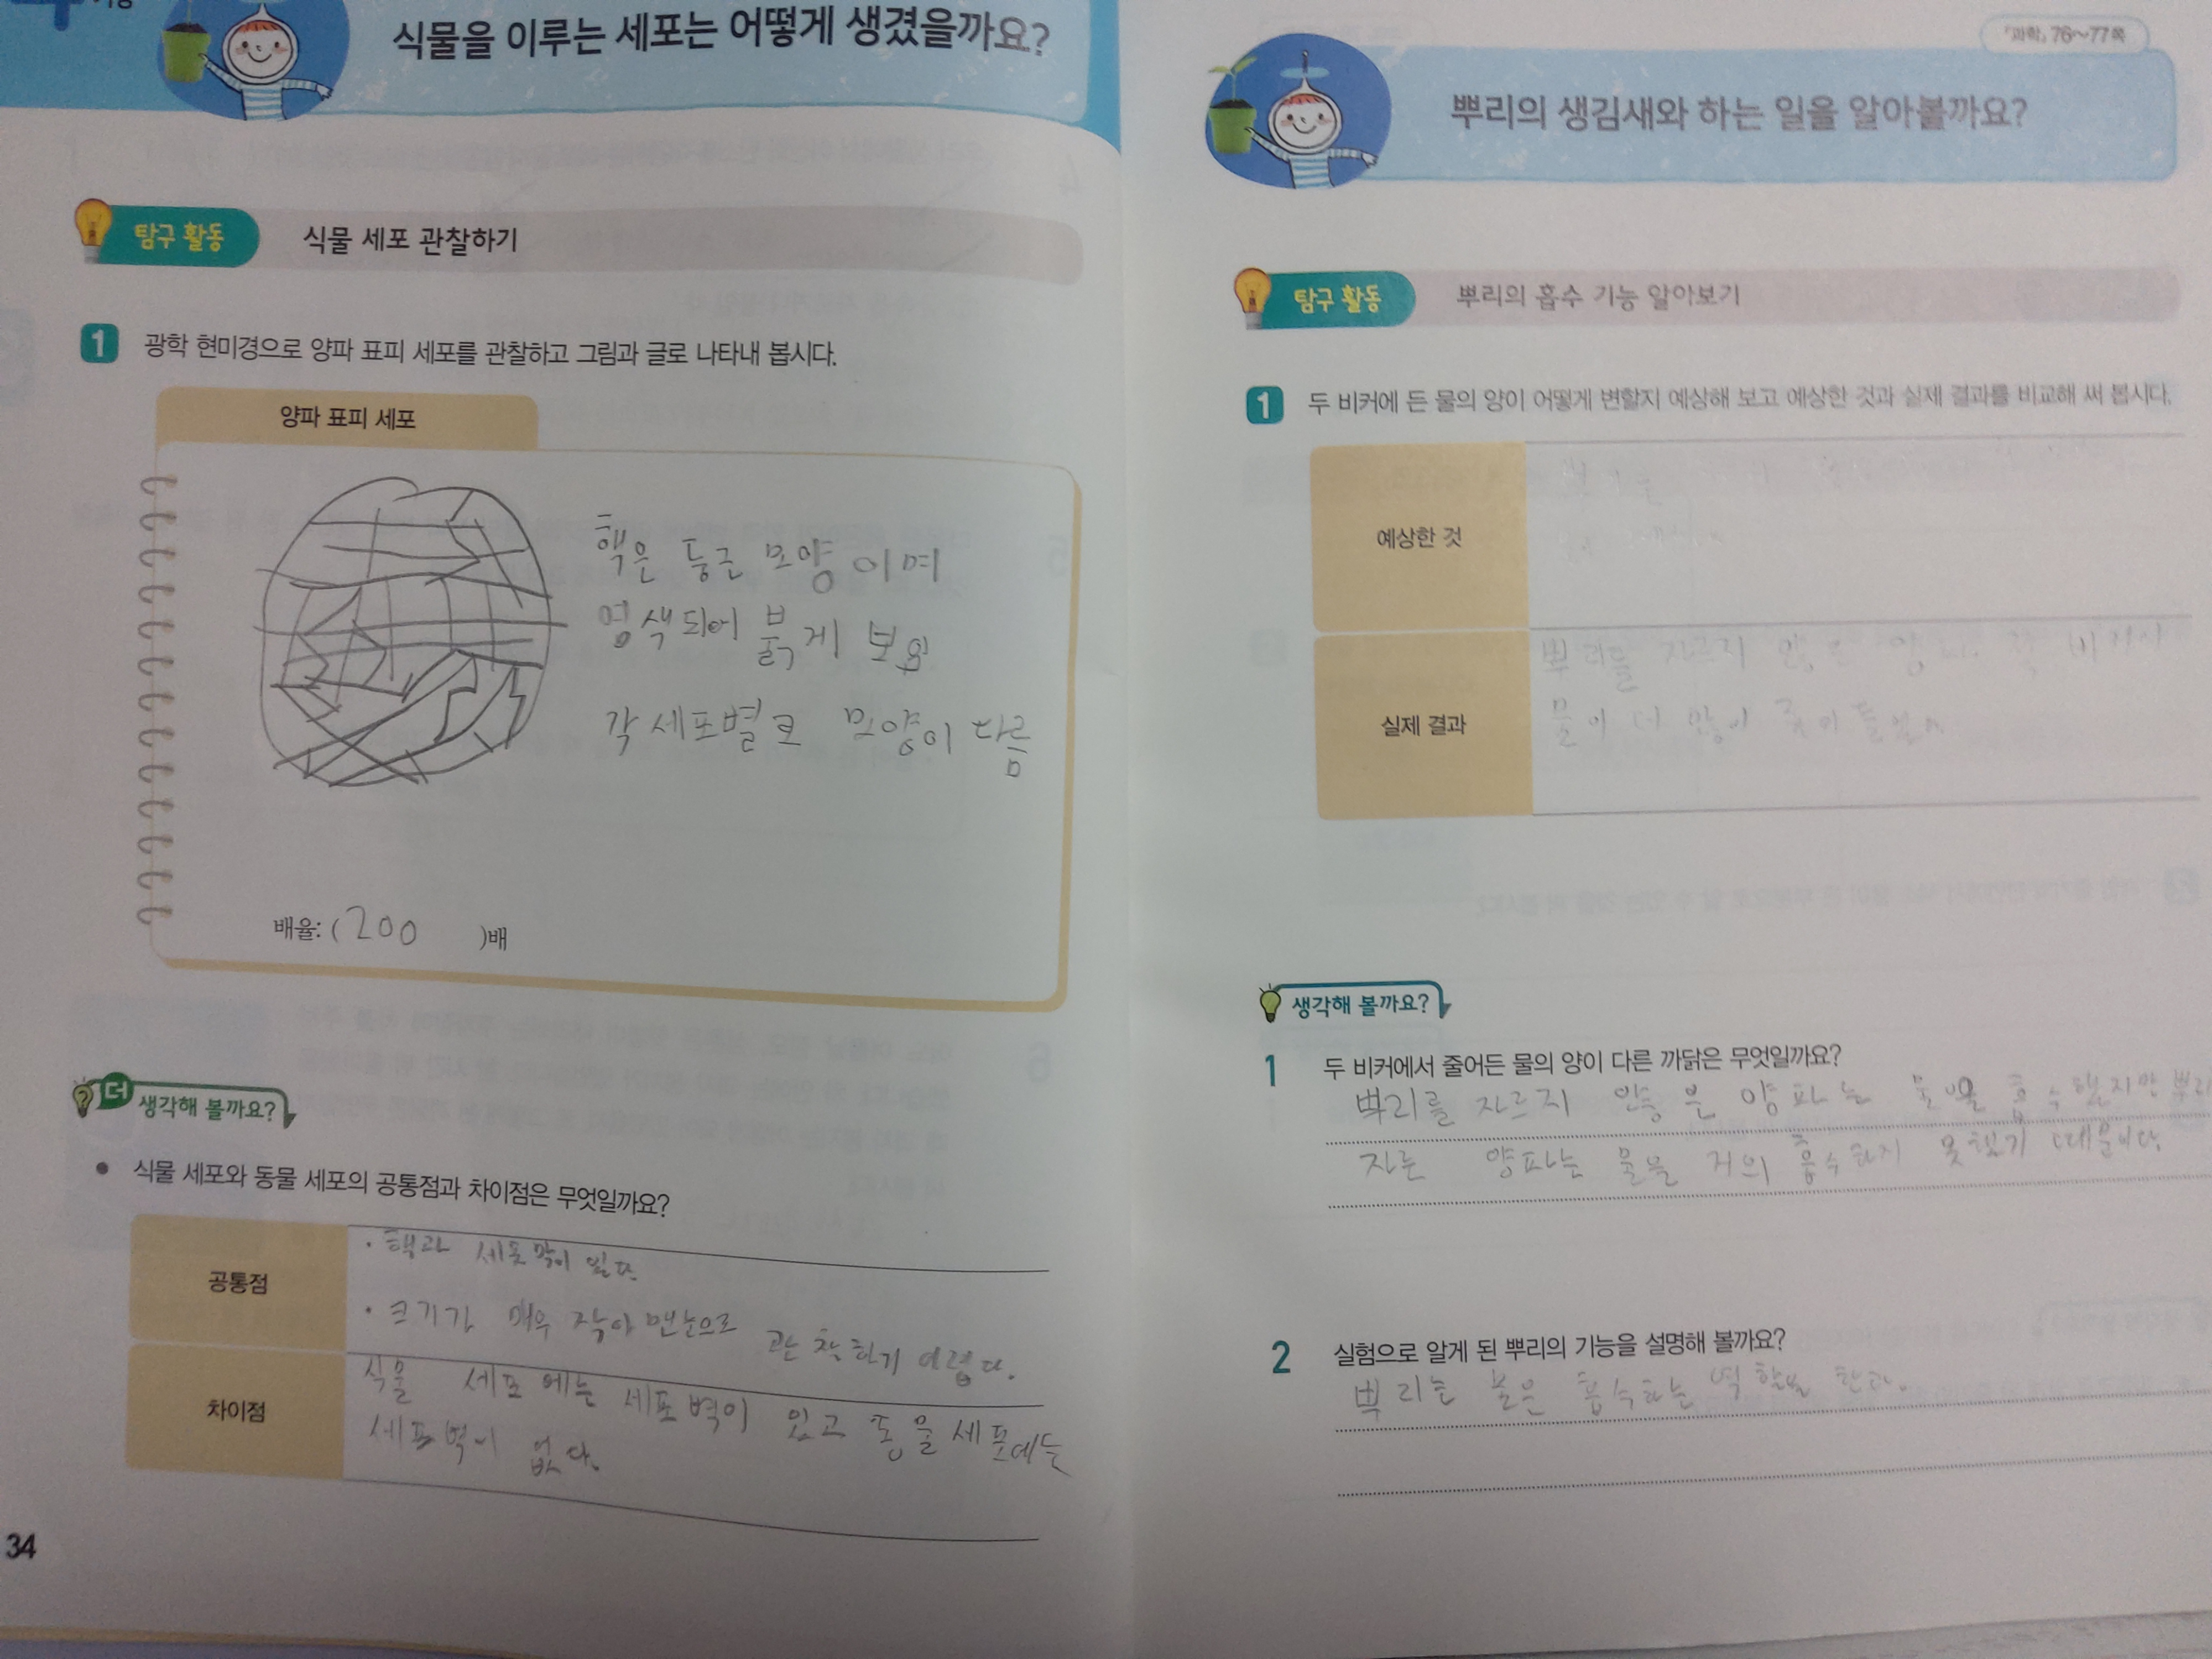 식물을 이루는 세포는 어떻게 생겼을까요?
탐구 활동 식물 세포 관찰하기
1 광학 현미경으로 양파 표피 세포를 관찰하고 그림과 글로 나타내 봅시다.
양파 표피 세포
핵은 둥근 모양 이며
염색되어 붉게 보임
각 세포별로 모양이 다름
배율: (200 )배
더 생각해 볼까요?
• 식물 세포와 동물 세포의 공통점과 차이점은 무엇일까요?
공통점
· 핵과 세포막이 있다.
· 크기가 매우 작아 맨눈으로 관찰하기 어렵다.
차이점
식물 세포에는 세포벽이 있고 동물 세포에는
세포벽이 없다.
34
『과학』 76~77쪽
뿌리의 생김새와 하는 일을 알아볼까요?
탐구 활동 뿌리의 흡수 기능 알아보기
1 두 비커에 든 물의 양이 어떻게 변할지 예상해 보고 예상한 것과 실제 결과를 비교해 써 봅시다.
예상한 것
실제 결과
뿌리를 자르지 않은 양파 쪽 비커의
물이 더 많이 줄어들었다
생각해 볼까요?
1 두 비커에서 줄어든 물의 양이 다른 까닭은 무엇일까요?
뿌리를 자르지 않은 양파는 물을 흡수했지만 뿌리
자른 양파는 물을 거의 흡수하지 못했기 때문이다.
2 실험으로 알게 된 뿌리의 기능을 설명해 볼까요?
뿌리는 물을 흡수하는 역할을 한다.